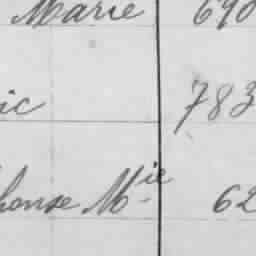 Marie 690
ic 783
honse M.ie 62